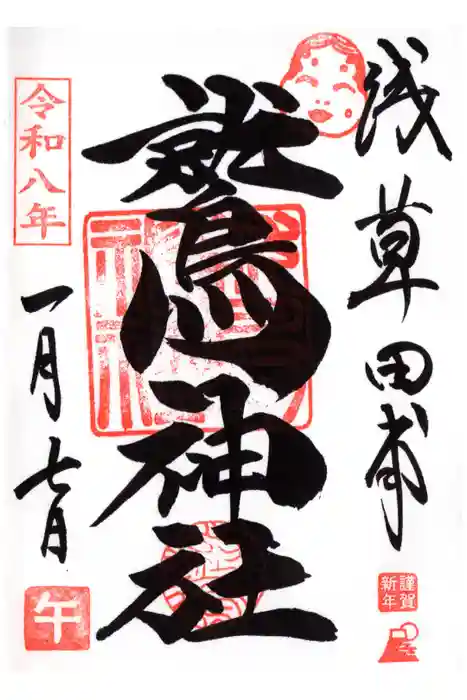 浅草田甫
鷲神社
令和八年
一月七日
午
謹賀
新年